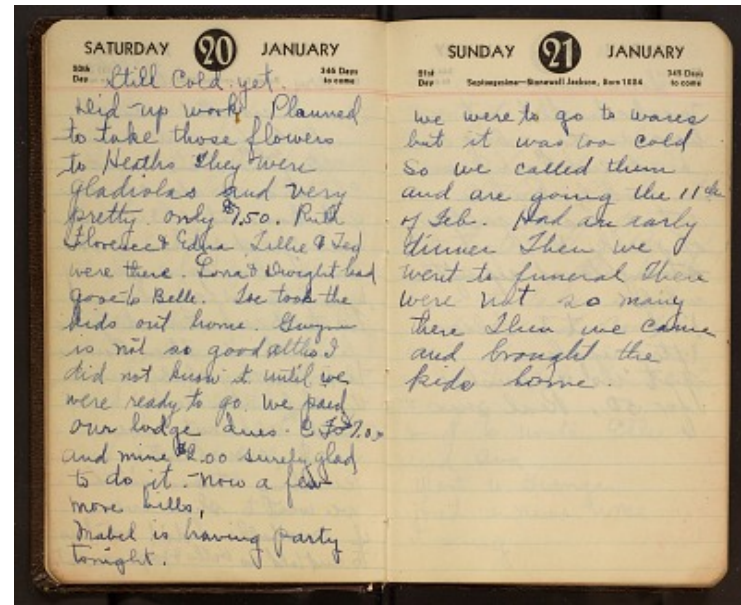 SATURDAY 20 JANUARY
20th Day
346 Days to come
Still Cold yet.
Did up work. Planned
to take those flowers
to Heaths They were
gladiolas and very
pretty. only $7.50. Ruth
Florence & Edna Tillie & Ted
were there. Lora & Dwight had
gone to Belle. Joe took the
kids out home.
is not so good altho I
did not know it until we
were ready to go. We paid
our lodge dues.
and mine $2.00 surely glad
to do it. - Now a few
more bills,
Mabel is having party
tonight.
SUNDAY 21 JANUARY
21st Day
Septuagesima—Stonewall Jackson, Born 1824
345 Days to come
we were to go to wares
but it was too cold
So we called them
and are going the 11th
of Feb. Had an early
dinner Then we
went to funeral There
were not so many
there Then we came
and brought the
kids home.